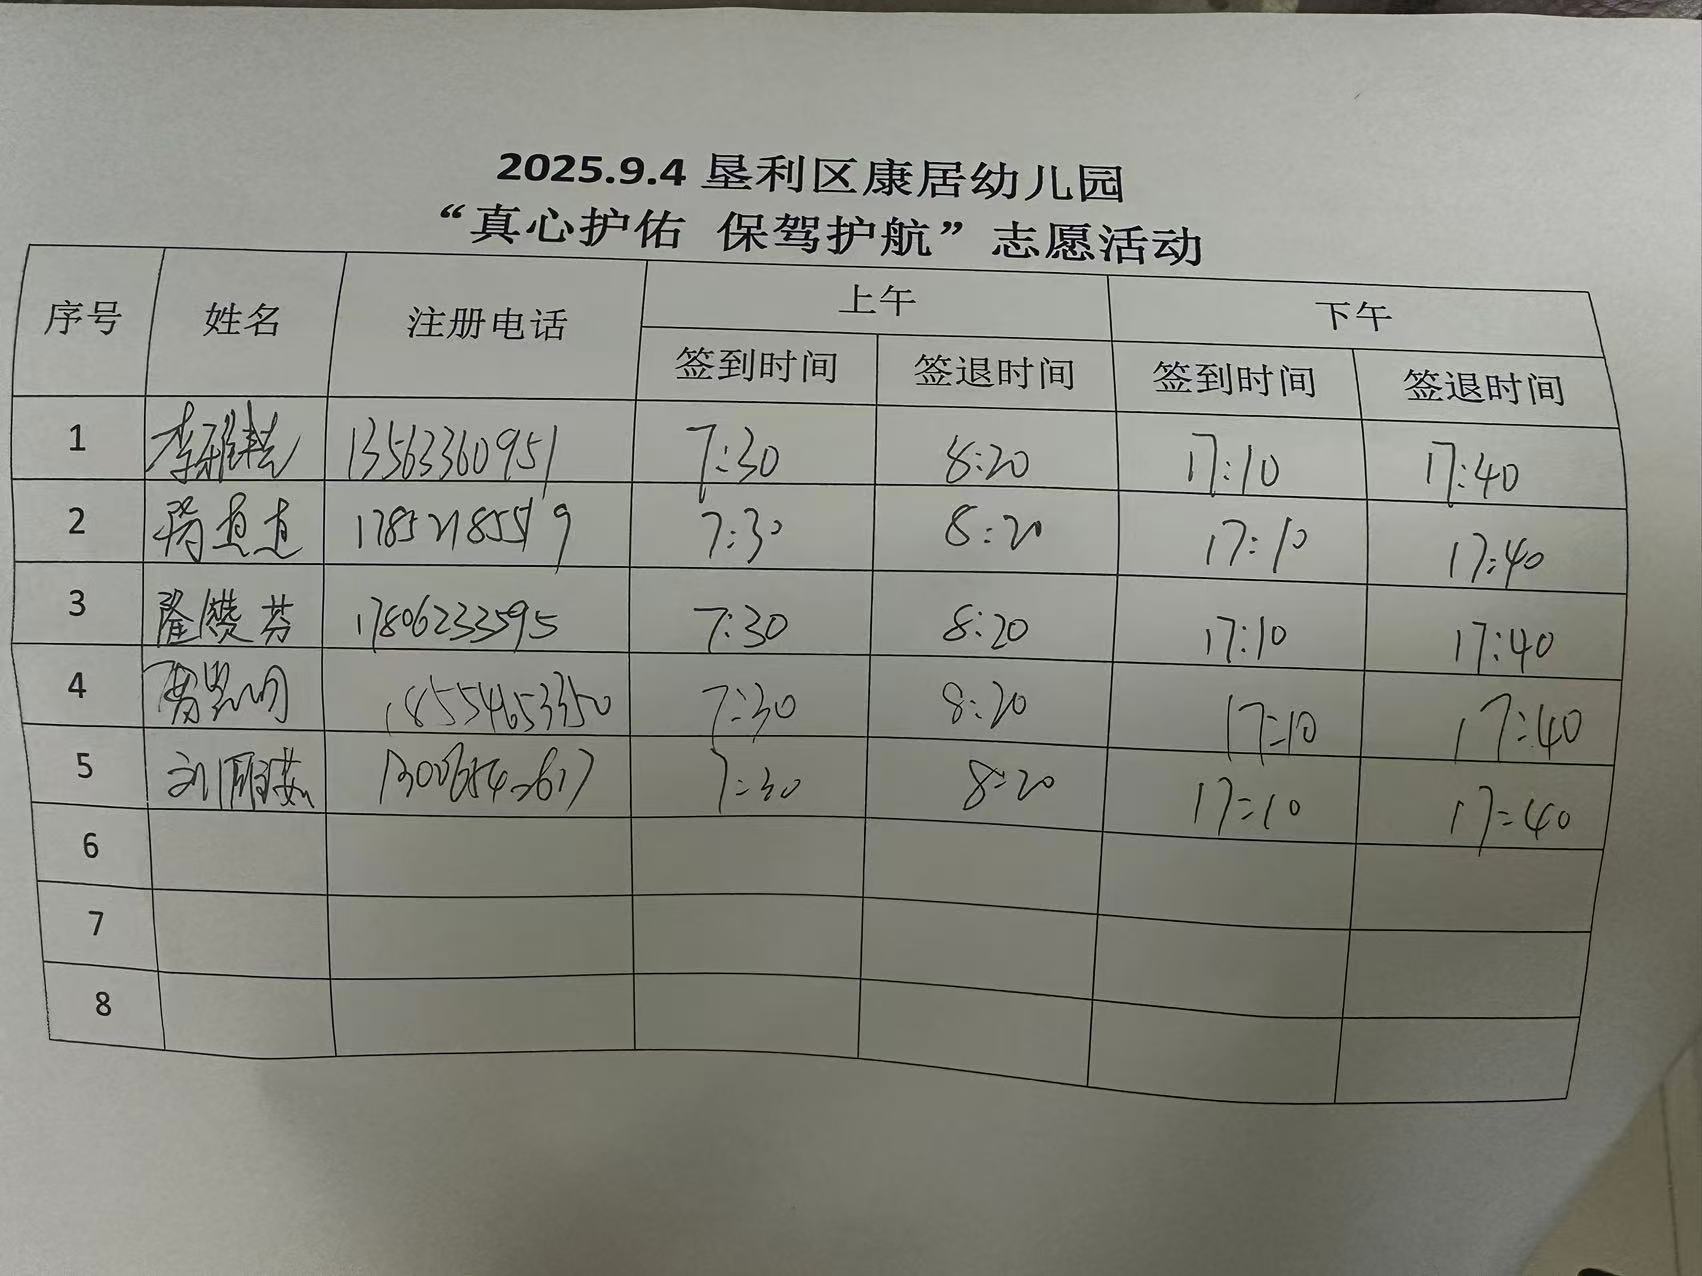 2025.9.4 垦利区康居幼儿园
“真心护佑 保驾护航”志愿活动
序号 姓名 注册电话 上午 下午
签到时间 签退时间 签到时间 签退时间
1 13563360951 7:30 8:20 17:10 17:40
2 7:30 8:20 17:10 17:40
3 隆赞芬 17806233595 7:30 8:20 17:10 17:40
4 18554653350 7:30 8:20 17:10 17:40
5 7:30 8:20 17:10 17:40
6
7
8